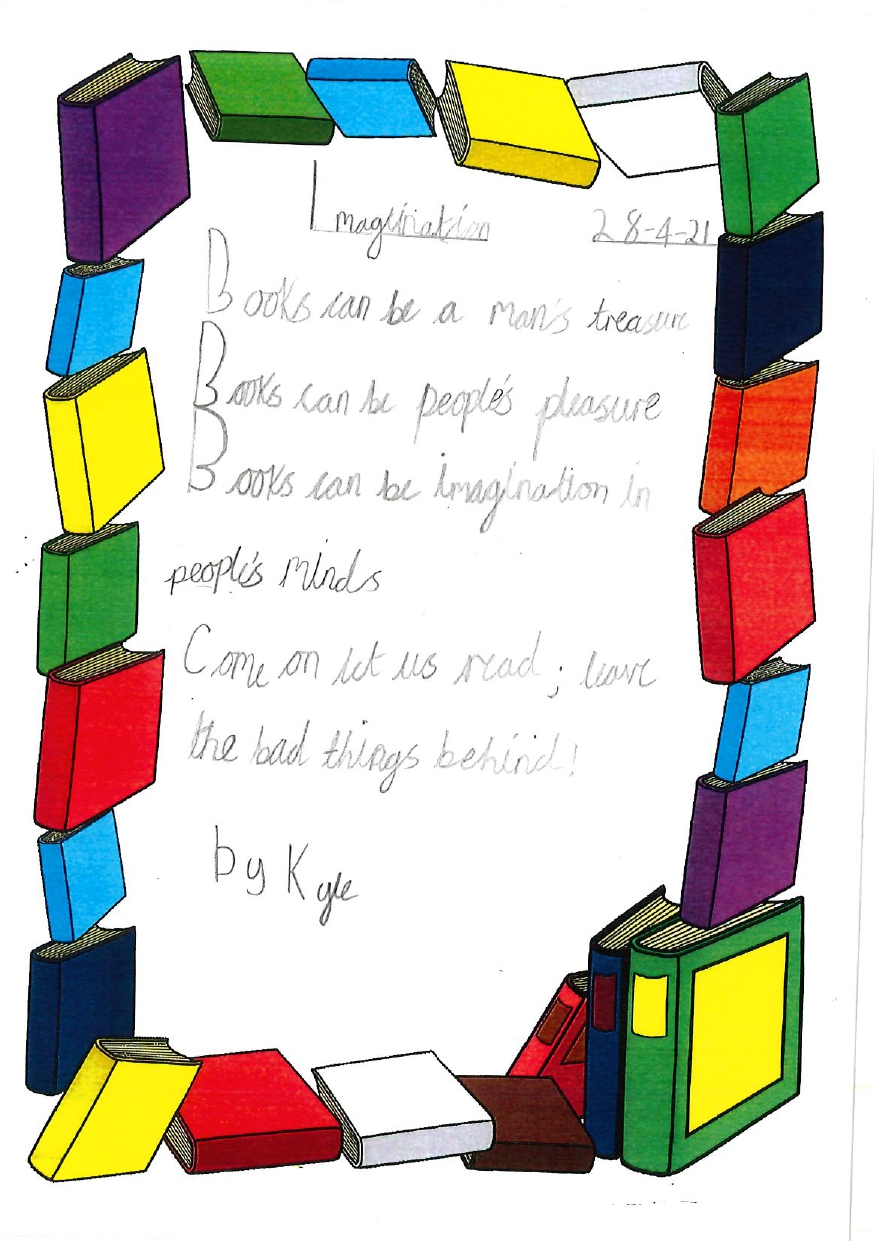 Imagination 28-4-21
Books can be a man's treasure
Books can be people's pleasure
Books can be imagination in
people's minds
Come on let us read ; leave
the bad things behind!
by Kyle